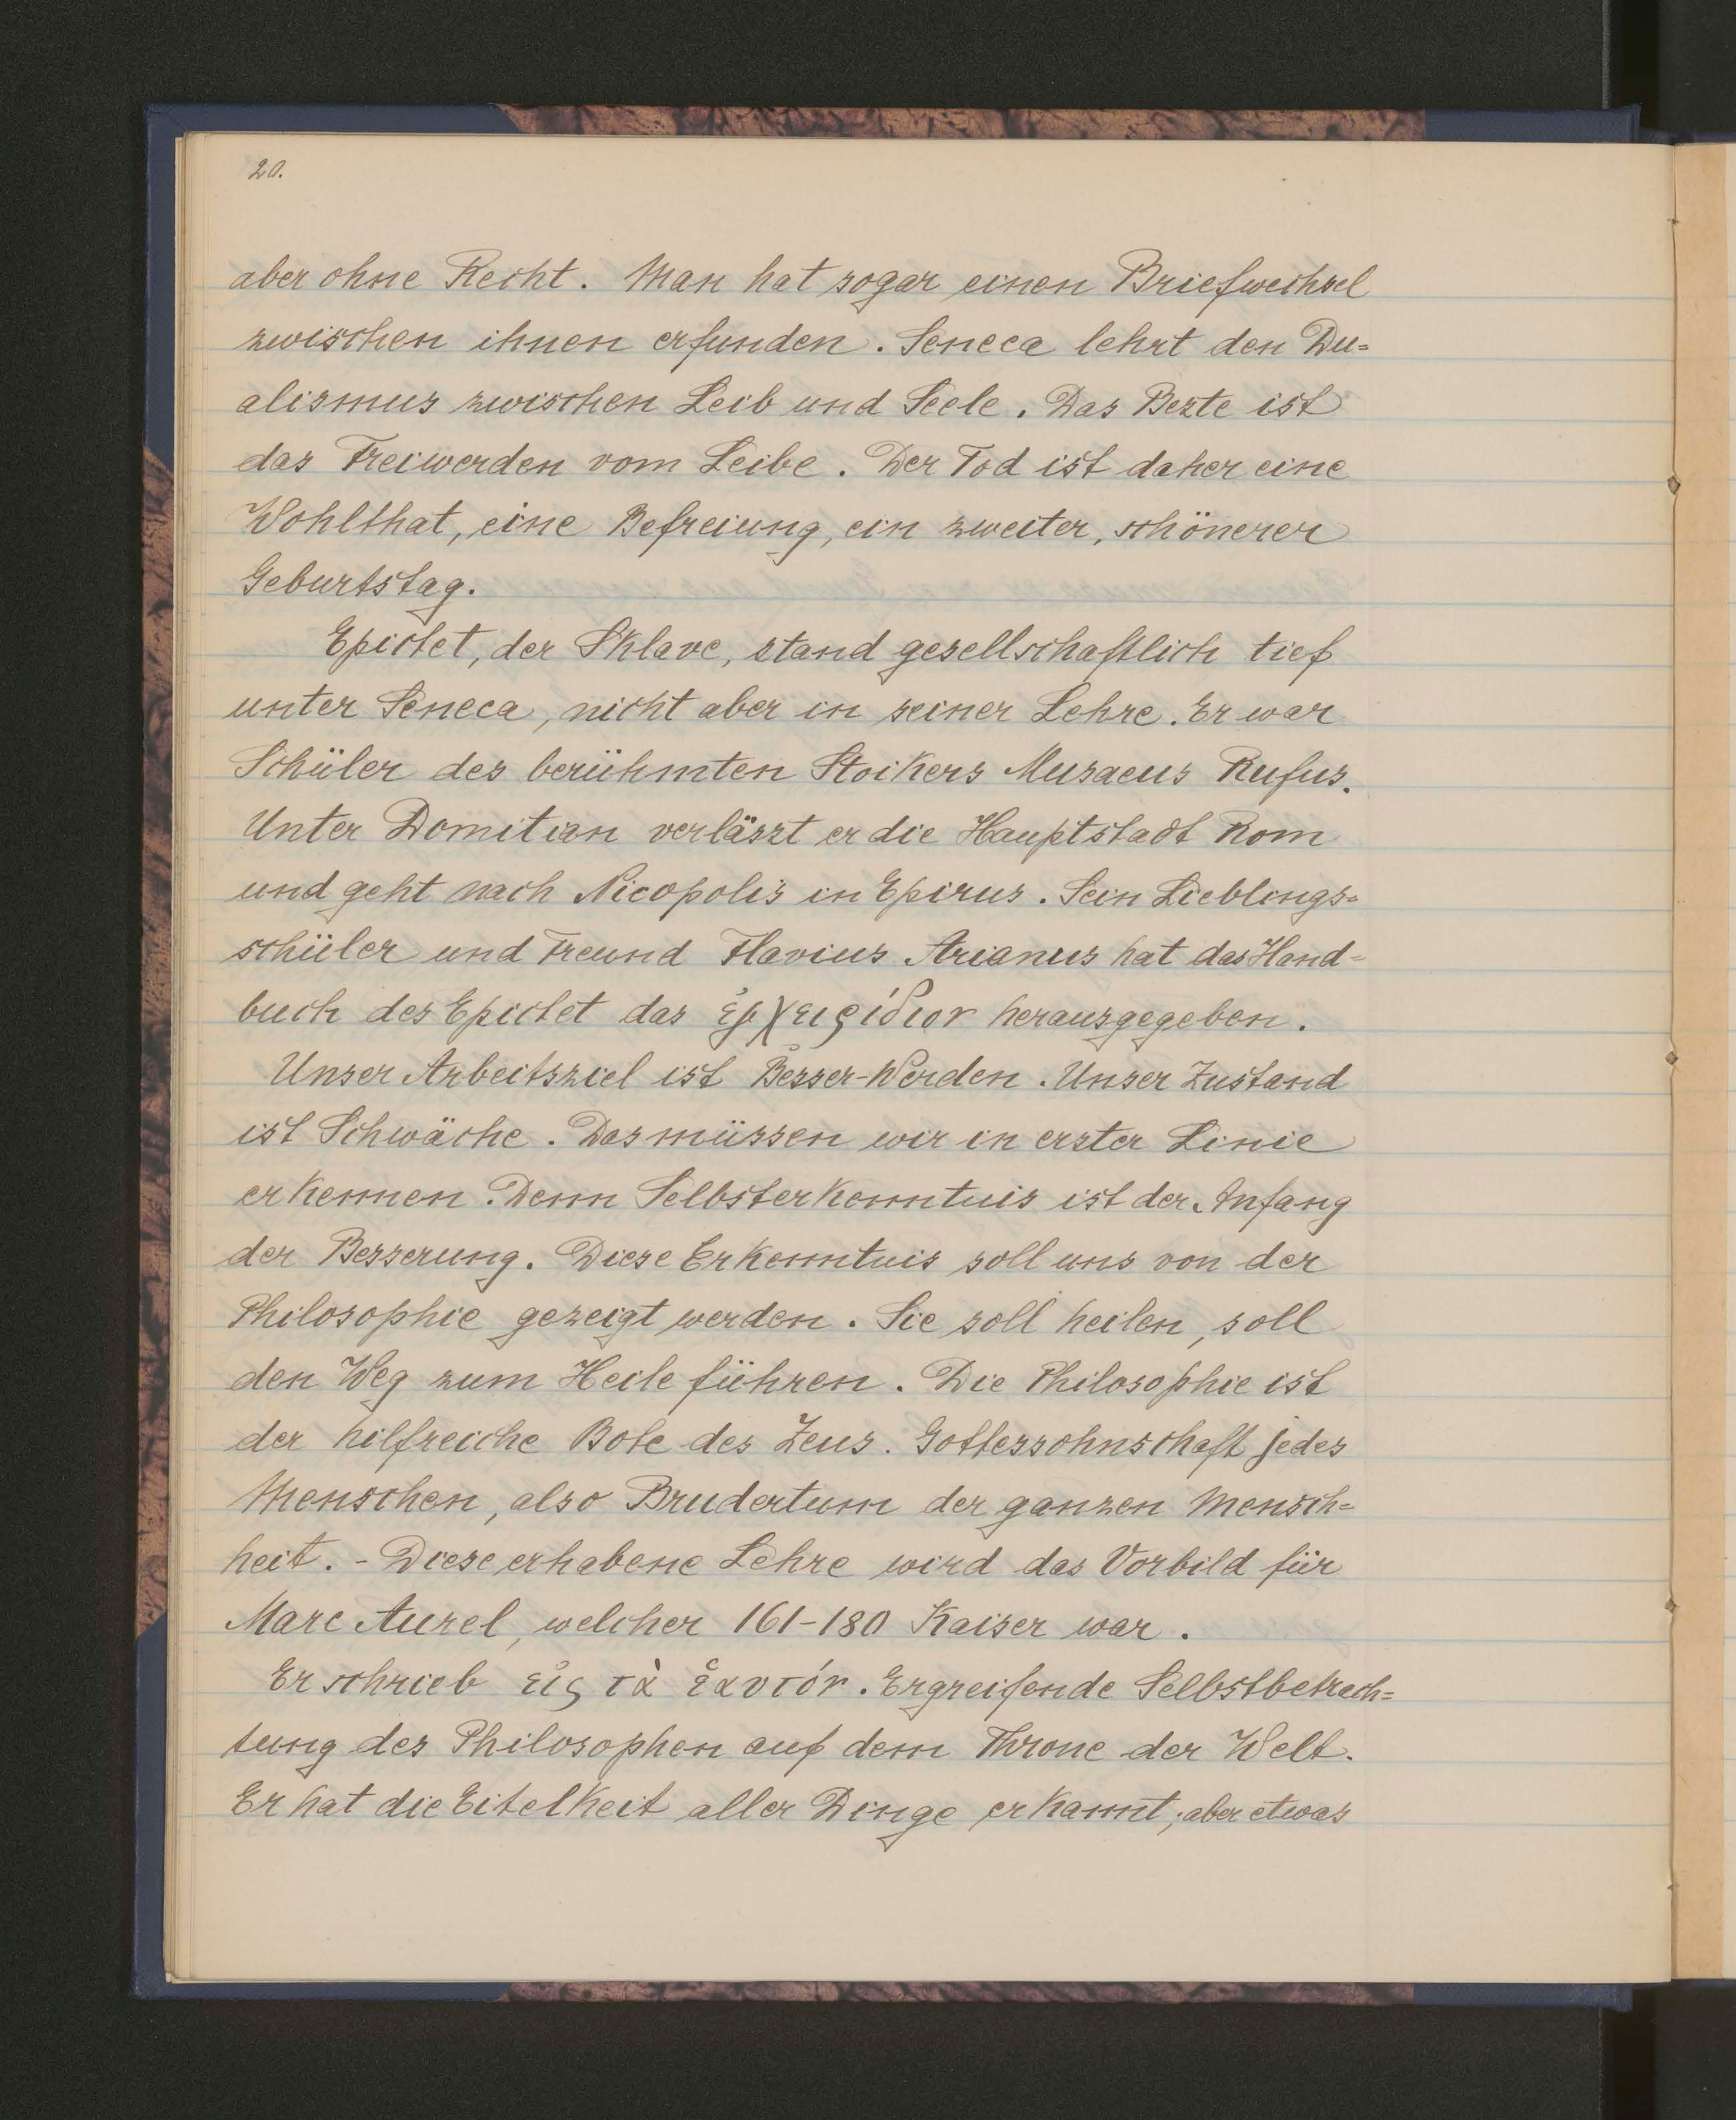 20.
aber ohne Recht. Man hat sogar einen Briefwechsel
zwischen ihnen erfunden. Seneca lehrt den Du=
alismus zwischen Leib und Seele. Das Beste ist
das Freiwerden vom Leibe. Der Tod ist daher eine
Wohlthat, eine Befreiung, ein zweiter, schönerer
Geburtstag.
Epictet, der Sklave, stand gesellschaftlich tief
unter Seneca, nicht aber in seiner Lehre. Er war
Schüler des berühmten Stoikers Musaeus Rufus.
Unter Domitian verlässt er die Hauptstadt Rom
und geht nach Nicopolis in Epirus. Sein Lieblings=
schüler und Freund Flavius Arianus hat das Hand=
buch des Epictet das ἐγχειρίδιον herausgegeben.
Unser Arbeitsziel ist Besser-Werden. Unser Zustand
ist Schwäche. Das müssen wir in erster Linie
erkennen. Denn Selbsterkenntnis ist der Anfang
der Besserung. Diese Erkenntnis soll uns von der
Philosophie gezeigt werden. Sie soll heilen, soll
den Weg zum Heile führen. Die Philosophie ist
der hilfreiche Bote des Zeus. Gottessohnschaft jedes
Menschen, also Brudertum der ganzen Mensch=
heit. - Diese erhabene Lehre wird das Vorbild für
Marc Aurel, welcher 161-180 Kaiser war.
Er schrieb εἰς τὰ ἑαυτόν. Ergreifende Selbstbetrach=
tung des Philosophen auf dem Throne der Welt.
Er hat die Eitelkeit aller Dinge erkannt; aber etwas